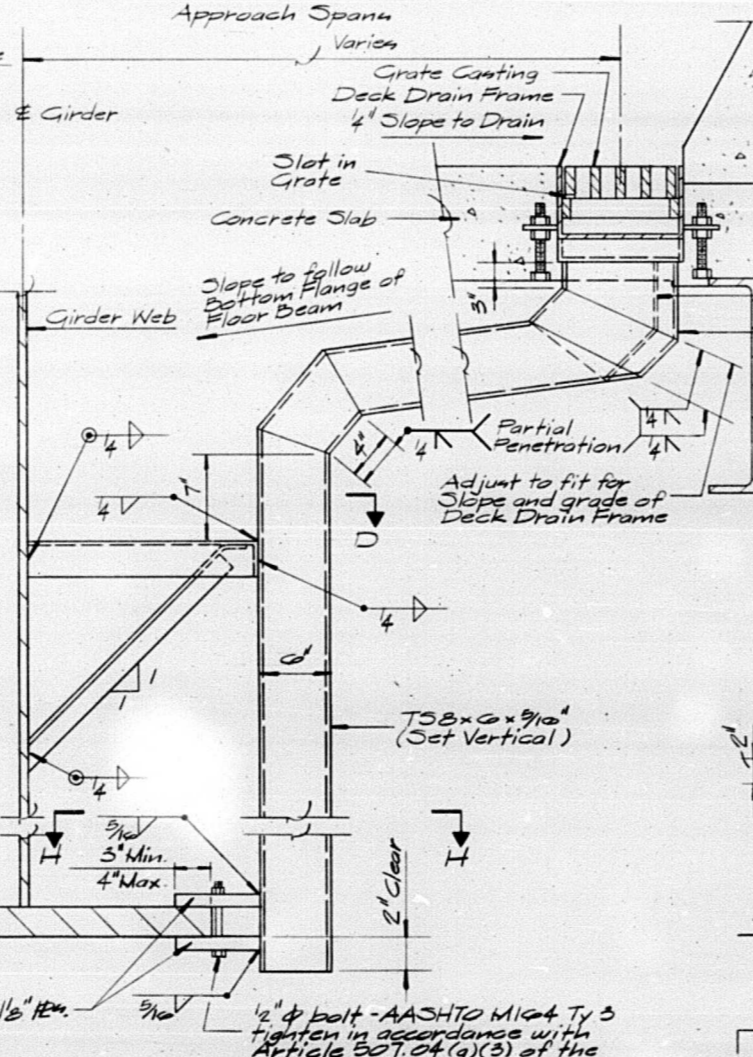 Approach Spans
Varies
Grate Casting
Deck Drain Frame
1/4" Slope to Drain
℄ Girder
Slot in
Grate
Concrete Slab
Slope to follow
Bottom Flange of
Floor Beam
Girder Web
3"
1/4
4"
1/4
Partial
Penetration
1/4
1/4
7"
1/4
Adjust to fit for
Slope and grade of
Deck Drain Frame
D
1/4
6"
1
1
TS8x6x5/16"
(Set Vertical)
1/4
5/16
H
H
3" Min.
4" Max.
2" Clear
5/16
1/2" ϕ bolt - AASHTO M164 Ty 3
tighten in accordance with
Article 507.04(g)(3) of the